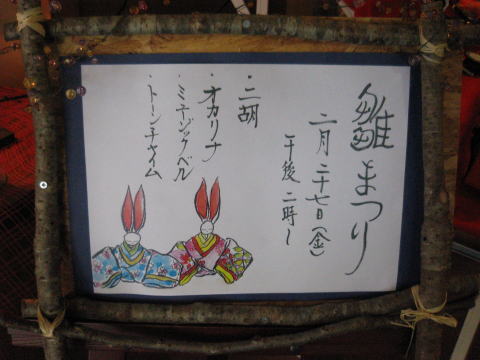 雛まつり
二月二十七日(金)
午後二時〜
・二胡
・オカリナ
・ミュージックベル
・トーンチャイム